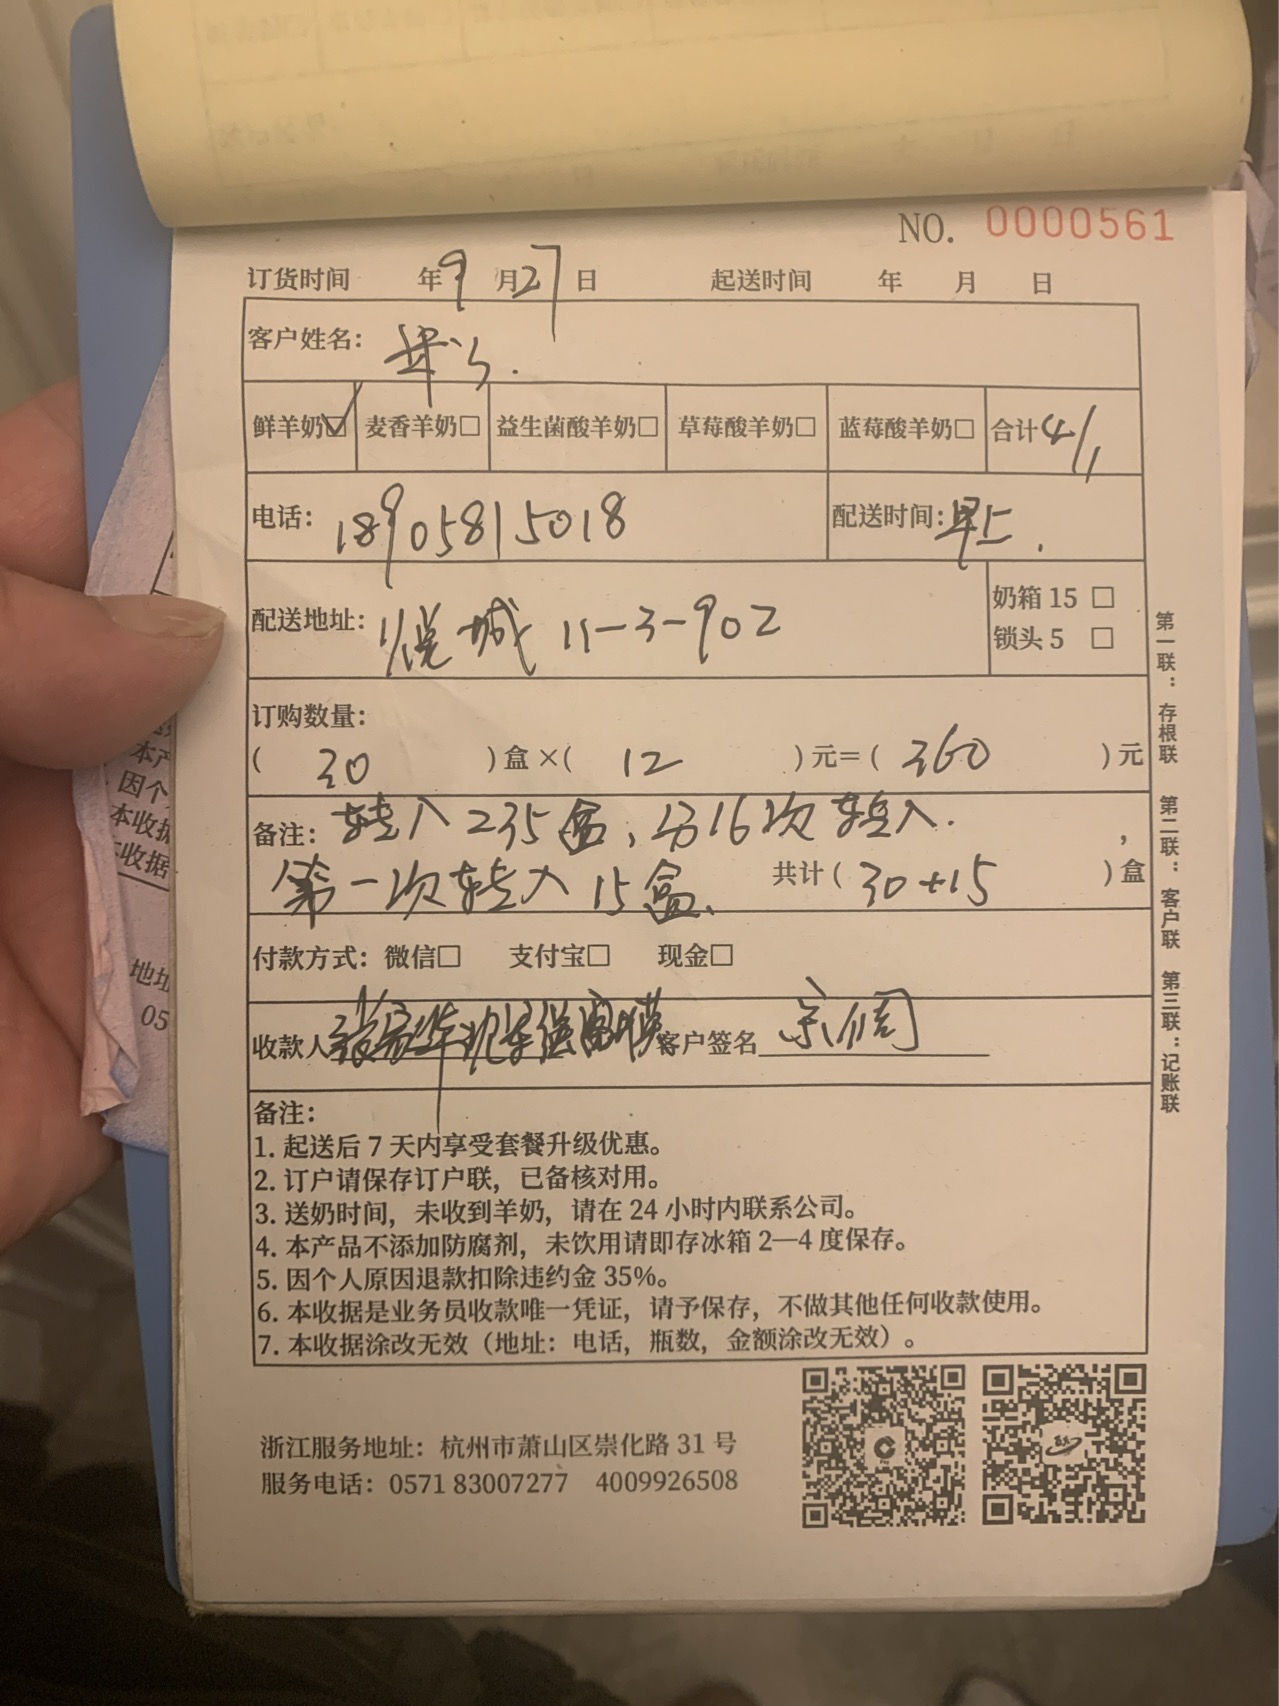 NO. 0000561
订货时间 年9月27日 起送时间 年 月 日
客户姓名：
鲜羊奶☑ 麦香羊奶□ 益生菌酸羊奶□ 草莓酸羊奶□ 蓝莓酸羊奶□ 合计4/1
电话：18905815018 配送时间：早上.
配送地址：悦城 11-3-902 奶箱 15 □
锁头 5 □
订购数量：
( 30 ) 盒 ×( 12 ) 元=( 360 ) 元
备注：转入235盒，分16次转入. ，
第一次转入15盒、 共计( 30+15 ) 盒
付款方式：微信□ 支付宝□ 现金□
收款人 客户签名
备注：
1. 起送后 7 天内享受套餐升级优惠。
2. 订户请保存订户联，已备核对用。
3. 送奶时间，未收到羊奶，请在 24 小时内联系公司。
4. 本产品不添加防腐剂，未饮用请即存冰箱 2—4 度保存。
5. 因个人原因退款扣除违约金 35%。
6. 本收据是业务员收款唯一凭证，请予保存，不做其他任何收款使用。
7. 本收据涂改无效（地址：电话，瓶数，金额涂改无效）。
浙江服务地址：杭州市萧山区崇化路 31 号
服务电话：0571 83007277 4009926508
第一联：存根联 第二联：客户联 第三联：记账联
本产
因个
本收据
收据
地址
05